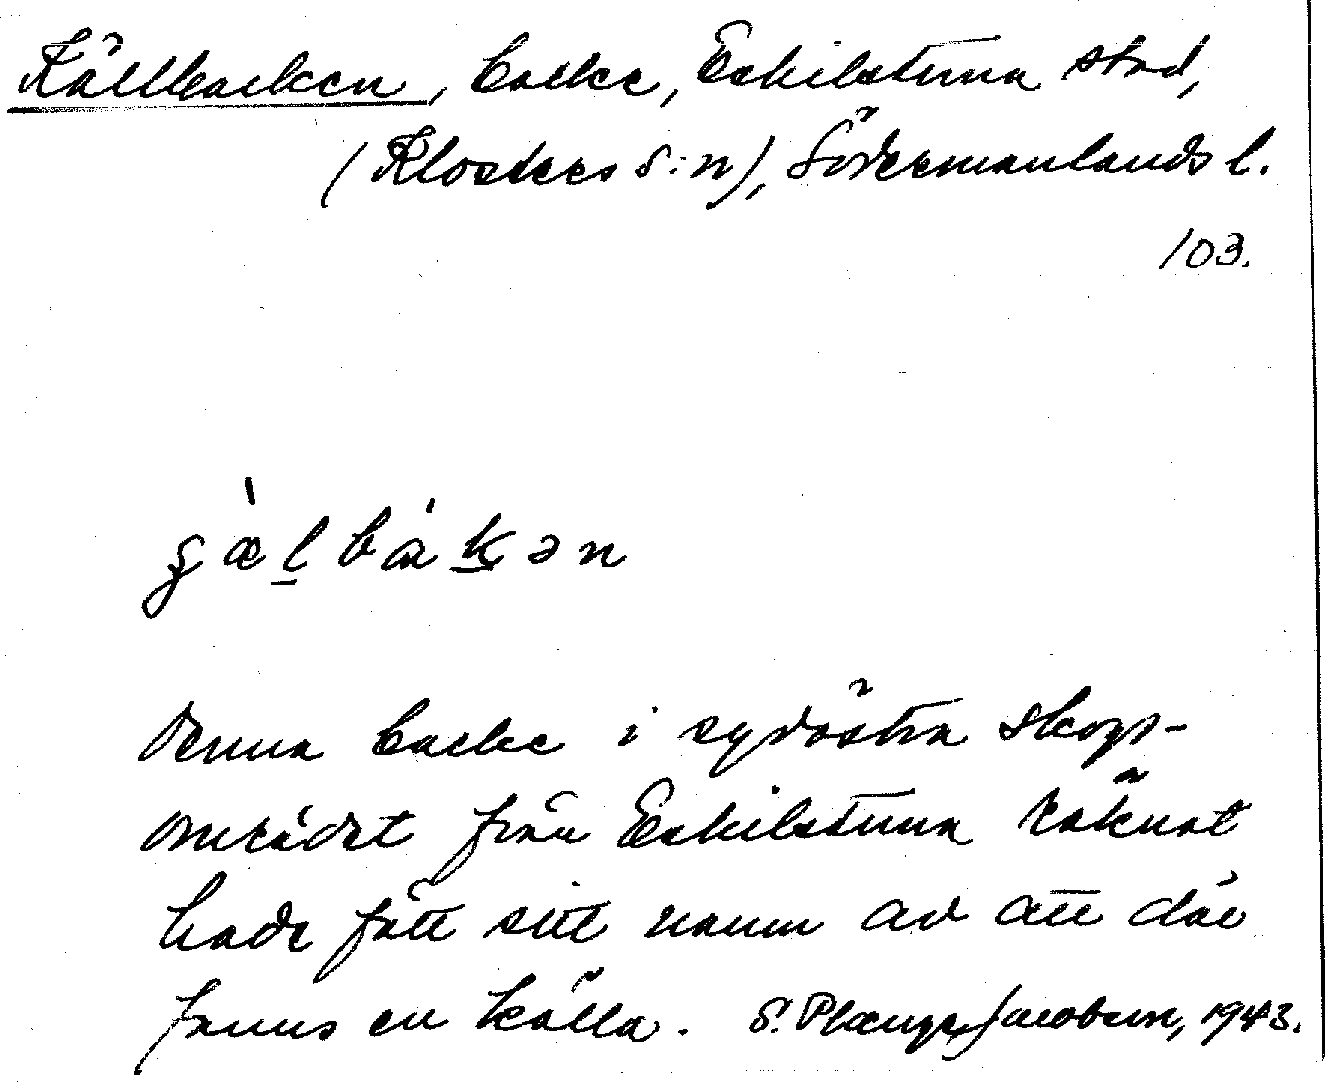 Källbacken, backe, Eskilstuna stad,
(Klosters s:n), Södermanlands l.
103.
g̀æl̠bák̠ən
Denna backe i sydöstra skogs-
området från Eskilstuna räknat
hade fått sitt namn av att där
fanns en källa. S. Plænge Jacobson, 1943.